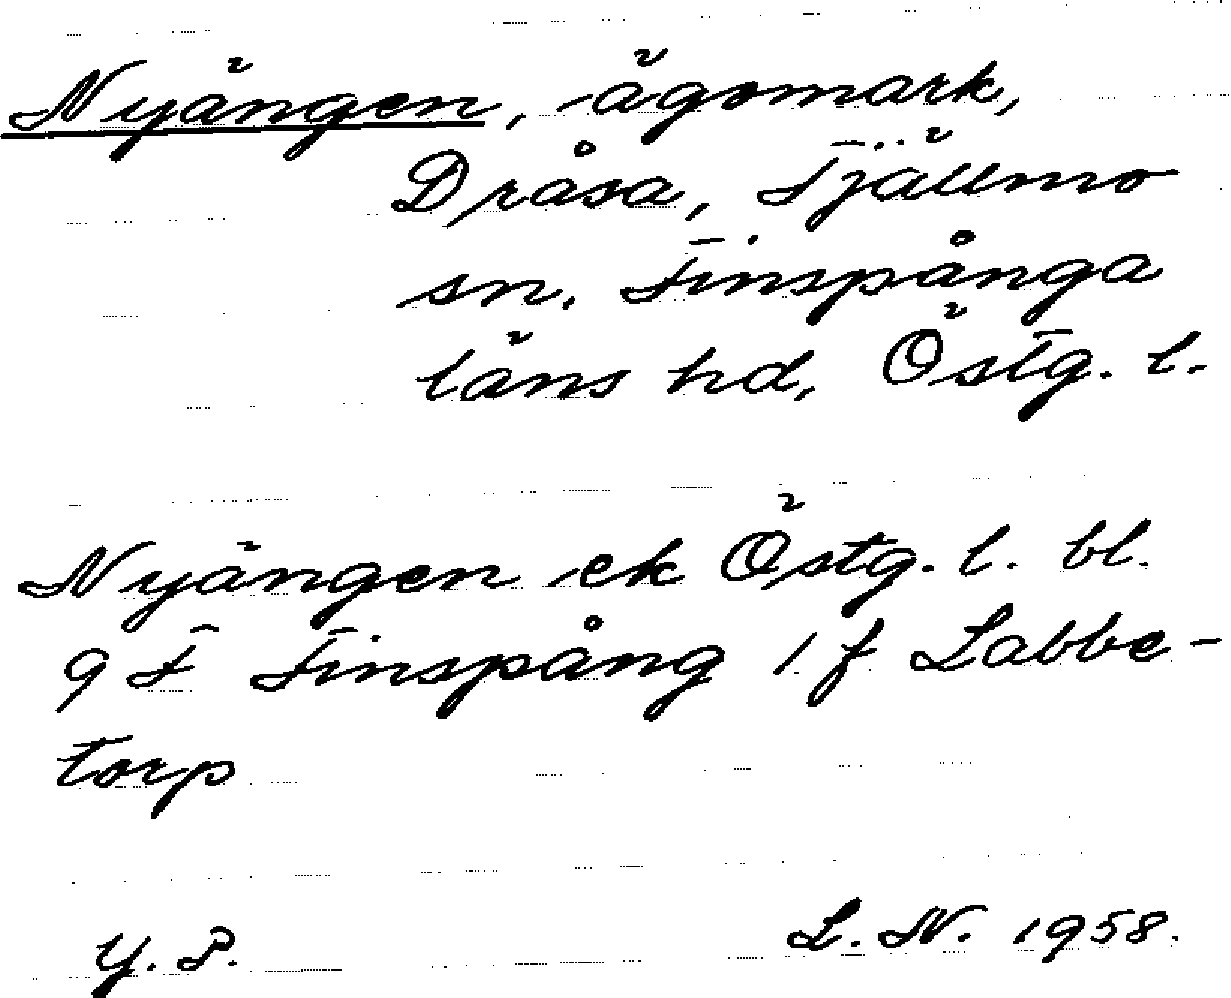 Nyängen, ägomark,
Dråsa, Tjällmo
sn. Finspånga
läns hd, Östg. l.
Nyängen ek Östg. l. bl.
9 F Finspång 1 f Labbe-
torp
Y. P. L. N. 1958.